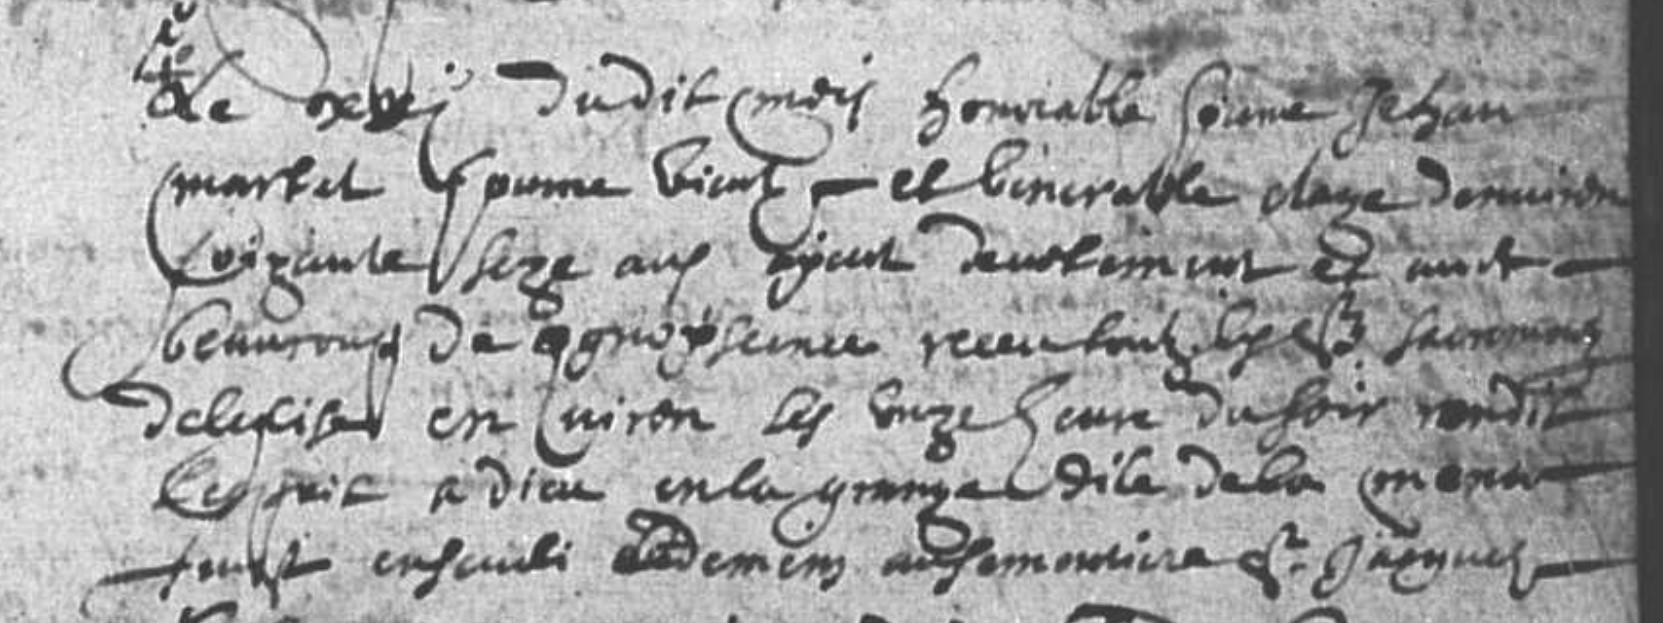 Le xxvj dudit mois honorable home Jehan
martet home vieux et venerable eage denviron
soixante seze ans ayant devotement et avec
beaucoup de cognoissance receu tout les sts sacremens
de leglise environ les unze heure du soir rendit
lesprit a dieu en la grange dite de la
fust enseveli demein au semontiere st Jacques